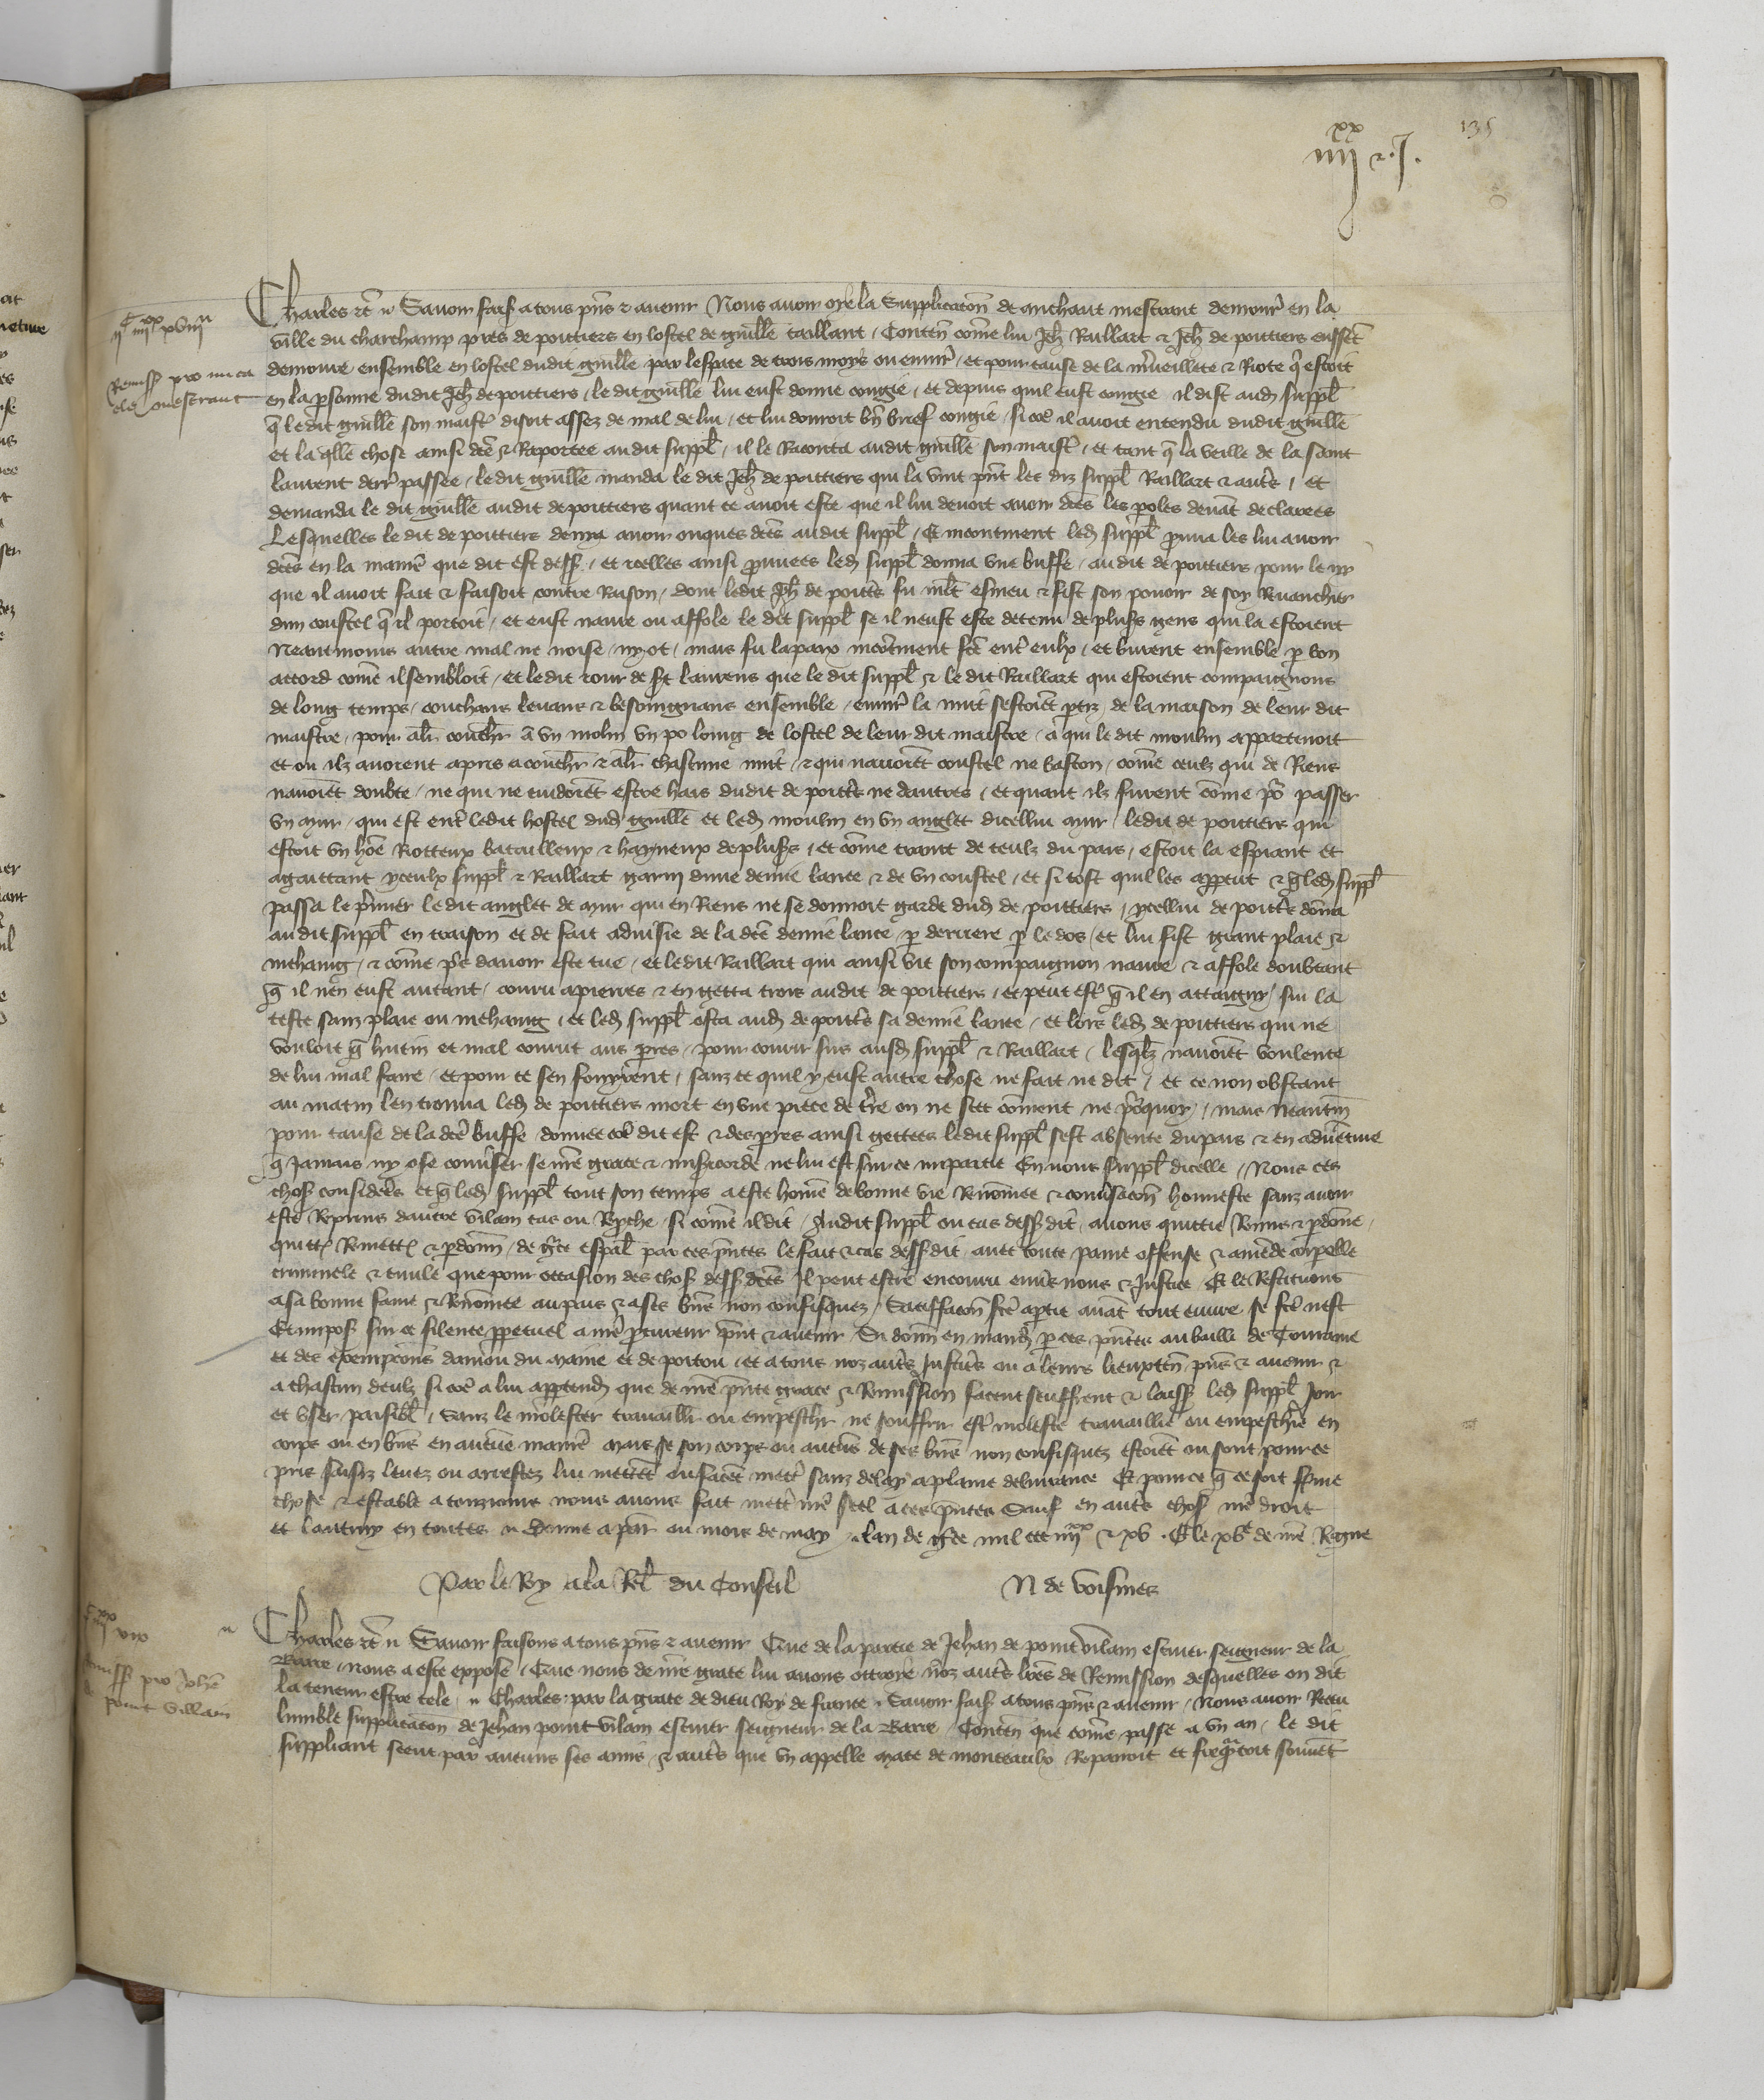 135
iiii xx et .I.
Charles etc. Savoir fais a tous pñs et avenir Nous avoir oye la Supplicacõn de michaut mestrant demour̃ en la
ville du charchamp pres de poittiers en lostel de guillẽ taillant, Conteñ cõme lui Jeh̃ Raillart et Jeh̃ de poittiers eussẽt
demoure ensemble en lostel dudit guillẽ par lespace de trois moys ou envir̃, et pour cause de la mꝰveillete et Riote qͥ estoit
en la psonne dudit Jeh̃ de poittiers, le dit guillẽ lui eust donne congie, et depuis quil eust congie il dist aud suppl̃
q̃ le dit guillẽ son maistꝰ disoit assez de mal de lui, et lui donroit bñ brief congie, si cõe il avoit entendu dudit guillẽ
et la qllẽ chose ainsi dcẽ et Raportee audit suppl̃, il le Raconta audit guillẽ son maistꝰ, et tant q̃ la veille de la saint
laurent derr̃ passee, le dit guillẽ manda le dit Jeh̃ de poittiers qui la vint pñt les diz suppl̃ Raillart et autꝰs, et
demanda le dit guillẽ audit de poittiers quant ce avoit este que il lui devoit avoir dcẽs les poles devãt declarees
Lesquelles le dit de poittiers denya avoir onques dcẽs audit suppl̃, Et incontinent led suppl̃ prouva les lui avoir
dcẽs en la manieꝰ que dit est dess, et icelles ainsi prouvees led suppl̃ donna une buffe, audit de poittiers pour le
que il avoit fait et faisoit contre Raison, dont ledit Jeh̃ de poittꝰs fu ml̃t esmeu et fist son povoir de soy Revanchier
dun coustel q̃ il portoit, et eust navre ou affole le dit suppl̃ se il neust este detenu de plusꝰs gens qui la estoient
Neantmoins autre mal ne noise, ny ot, mais fu la paix incontinẽt fcẽ entꝰ eulx, et burent ensemble p bon
accord cõme il sembloit, et le dit jour de st laurens que le dit suppl̃ et le dit Raillart qui estoient compaignons
de long temps, couchans levans et besoingnans ensemble, envir̃ la nuit sestoiẽt ptiz, de la maison de leur dit
maistre, pour al̃r couchr̃ a un molin un po loing de lostel de leur dit maistre, a qui le dit moulin appartenoit
et ou ilz avoient apris a couchr̃ et al̃r chascune nuit, et qui navoiẽt coustel ne baston, cõme ceulx qui de Riens
navoiẽt doubte, ne qui ne cuidoiẽt estre hais dudit de poittꝰs ne dautres, et quant ilz furent cõme pꝰ passer
un mur, qui est entꝰ ledit hostel dud guillẽ et led moulin en un anglet dicellui mur, ledit de poittiers qui
estoit un hõe Riotteux batailleux et hayneux de plusꝰs, et cõme craint de ceulz du pais, estoit la espiant et
agaittant yceulx suppl̃ et Raillart garni dune demie lance et de un coustel, et si tost quil les apperceut et q̃ led suppl̃
passa le pꝰmier le dit anglet de mur qui en Riens ne se donnoit garde dud de poittiers, ycellui de poittꝰs dõna
audit suppl̃ en traison et de fait advisie de la dcẽ demie lance, p derriere p le dos, et lui fist grant plaie et
mehaing, et cõme pꝰs davoir este tue, et le dit Raillart qui ainsi vit son compaignon navre et affole doubtant
q̃ il nen eust autant, couru a pierres et en getta trois audit de poittiers, et peut estꝰ q̃ il en attaigny, sur la
teste sanz plaie ou mehaing, et led suppl̃ osta aud de poittꝰs sa demie lance, et lors led de poittiers qui ne
vouloit q̃ hutin et mal courut aus pꝰres, pour courir sus ausd suppl̃ et Raillart, lesqlz navoiẽt voulente
de lui mal faire, et pour ce sen fouyrent, sanz ce quil y eust autre chose ne fait ne dit, et ce non obstant
au matin len trouva led de poittiers mort en une piece de tꝰre on ne scet cõment ne pꝰquoy, mais neantm̃
pour cause de la dcẽ buffe, donnee cõe dit est et des pꝰres ainsi gettees ledit suppl̃ sest absente du pais et en advẽture
q̃ jamais ny ose convꝰser se nrẽ grace et misꝰicorde ne lui est sur ce impartie En nous suppl̃ dicelle, Nous ces
chosꝰ considerẽs et q̃ led suppl̃ tout son temps a este hom̃e de bonne vie Renõmee et convꝰsacõn honneste sanz avoir
este Reprins dautre vilain cas ou Repche, si cõme il dit, Audit suppl̃ ou cas dessꝰdit, avons quittie Remis et pdõne,
quittꝰ Remettꝰ et pdonñ, de grãce espãl par ces pñtes le fait et cas dessꝰdit, avec toute paine offense et amẽde corpelle
criminele et civile que pour occasion des chosꝰ dess dcẽs Il peut estre encouru envꝰs nous et Justice, Et le Restituons
a sa bonne fame et Renõmee au pais et a ses biẽs non confisquez, Satisfacõn fcẽ a ptie avãt tout euvre se fcẽ nest
Et imposꝰ sur ce silence ppetuel a nrẽ pcureur pñt et avenir, Si donñ en mand p ces pñtes au bailli de Touraine
et des exempcions danjou du maine et de poitou, et a touz noz autꝰs Justicꝰs ou a leurs lieuxteñ pñs et avenir et
a chascun deulz si cõe a lui appartend que de nrẽ pñte grace et Remission facent seuffrent et laissꝰ led suppl̃ Joir
et user paisibl̃, sanz le molester travaill̃r ou empeschr̃ ne souffrir estꝰ moleste travaillie ou empeschie en
corps ou en biẽs en aucune manieꝰ mais se son corps ou aucũs de ses biẽs non confisquez estoiẽt ou sont pour ce
pris saisiz levez ou arrestez lui mettẽt ou facẽt mettꝰ sanz delay a plaine delivrance Et pour ce q̃ ce soit ferme
chose et estable a tousjours nous avons fait mettꝰ nrẽ seel a ces pñtes Sauf en autꝰs chosꝰ nrẽ droit
et lautruy en toutes. Donne a par̃ ou mois de may. lan de grãce mil ccc iiii xx et xv. Et le xv e de nrẽ Regne
Par le Roy a la Rel̃ du Conseil N de voisines
Charles etc. Savoir faisons a tous pñs et avenir Que de la partie de Jehan de point vilain escuier seigneur de la
Barre, nous a este expose, Que nous de nrẽ grace lui avons ottroye noz autꝰs lrẽs de Remission desquelles on dit
la teneur estre tele, Charles par la grace de dieu Roy de france, Savoir faisꝰ a tous pñs et avenir, Nous avoir Receu
lumble supplicacõn de Jehan point vilain escuier seigneur de la Barre, Conteñ que cõme passe a un an, le dit
suppliant sceut par aucuns ses amis, et autꝰs que un appelle mace de monteaulx Repairoit et frequẽtoit souvẽt